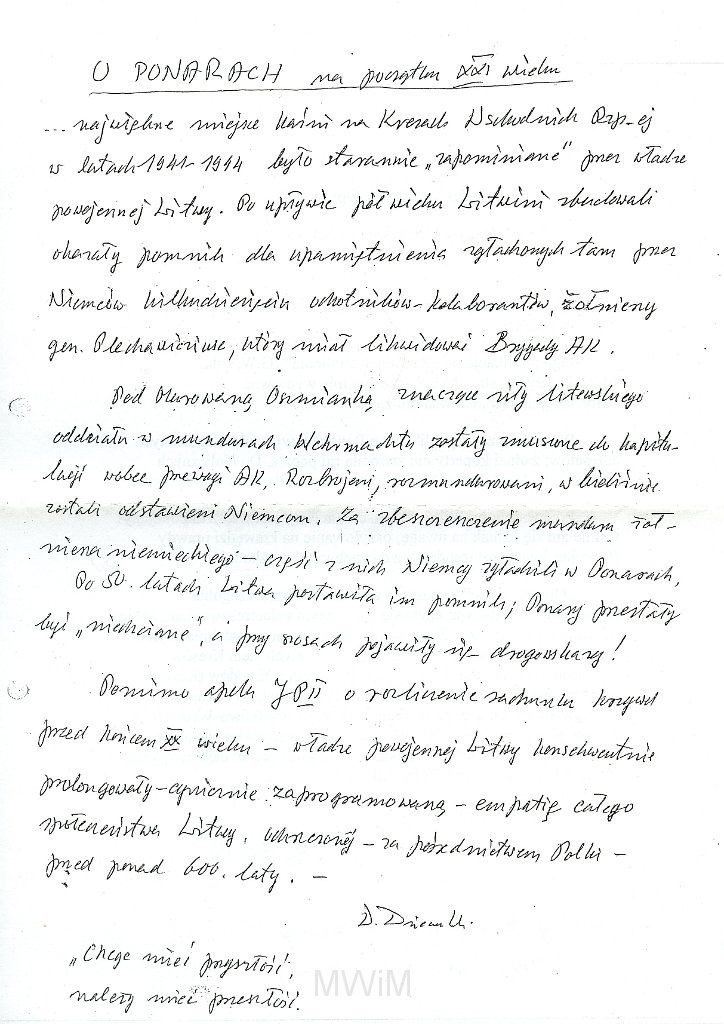 O PONARACH na początku XXI wieku
... największe miejsce kaźni na Kresach Wschodnich Rzp-ej
w latach 1941-1944 było starannie „zapominiane” przez władze
powojennej Litwy. Po upływie pół wieku Litwini zbudowali
okazały pomnik dla upamiętnienia zgładzonych tam przez
Niemców kilkudziesięciu ochotników-kolaborantów, żołnierzy
gen. Plechawicziusa, który miał likwidować Brygady AK.
Pod Murowaną Oszmianką znaczące siły litewskiego
oddziału w mundurach Wehrmachtu zostały zmuszone do kapitu-
lacji wobec przewagi AK. Rozbrojeni, rozmundurowani, w bieliźnie
zostali odstawieni Niemcom. Za zbeszczeszczenie munduru żoł-
nierza niemieckiego – część z nich Niemcy zgładzili w Ponarach,
Po 50. latach Litwa postawiła im pomnik; Ponary przestały
być „niechciane”, a przy szosach pojawiły się drogowskazy!
Pomimo apelu JPII o rozliczenie rachunku krzywd
przed końcem XX wieku – władze powojennej Litwy konsekwentnie
prolongowały – cynicznie zaprogramowaną – empatię całego
społeczeństwa Litwy, ochrzczonej – za pośrednictwem Polski –
przed ponad 600. laty. –
„Chcąc mieć przyszłość,
należy mieć przeszłość.
MWiM